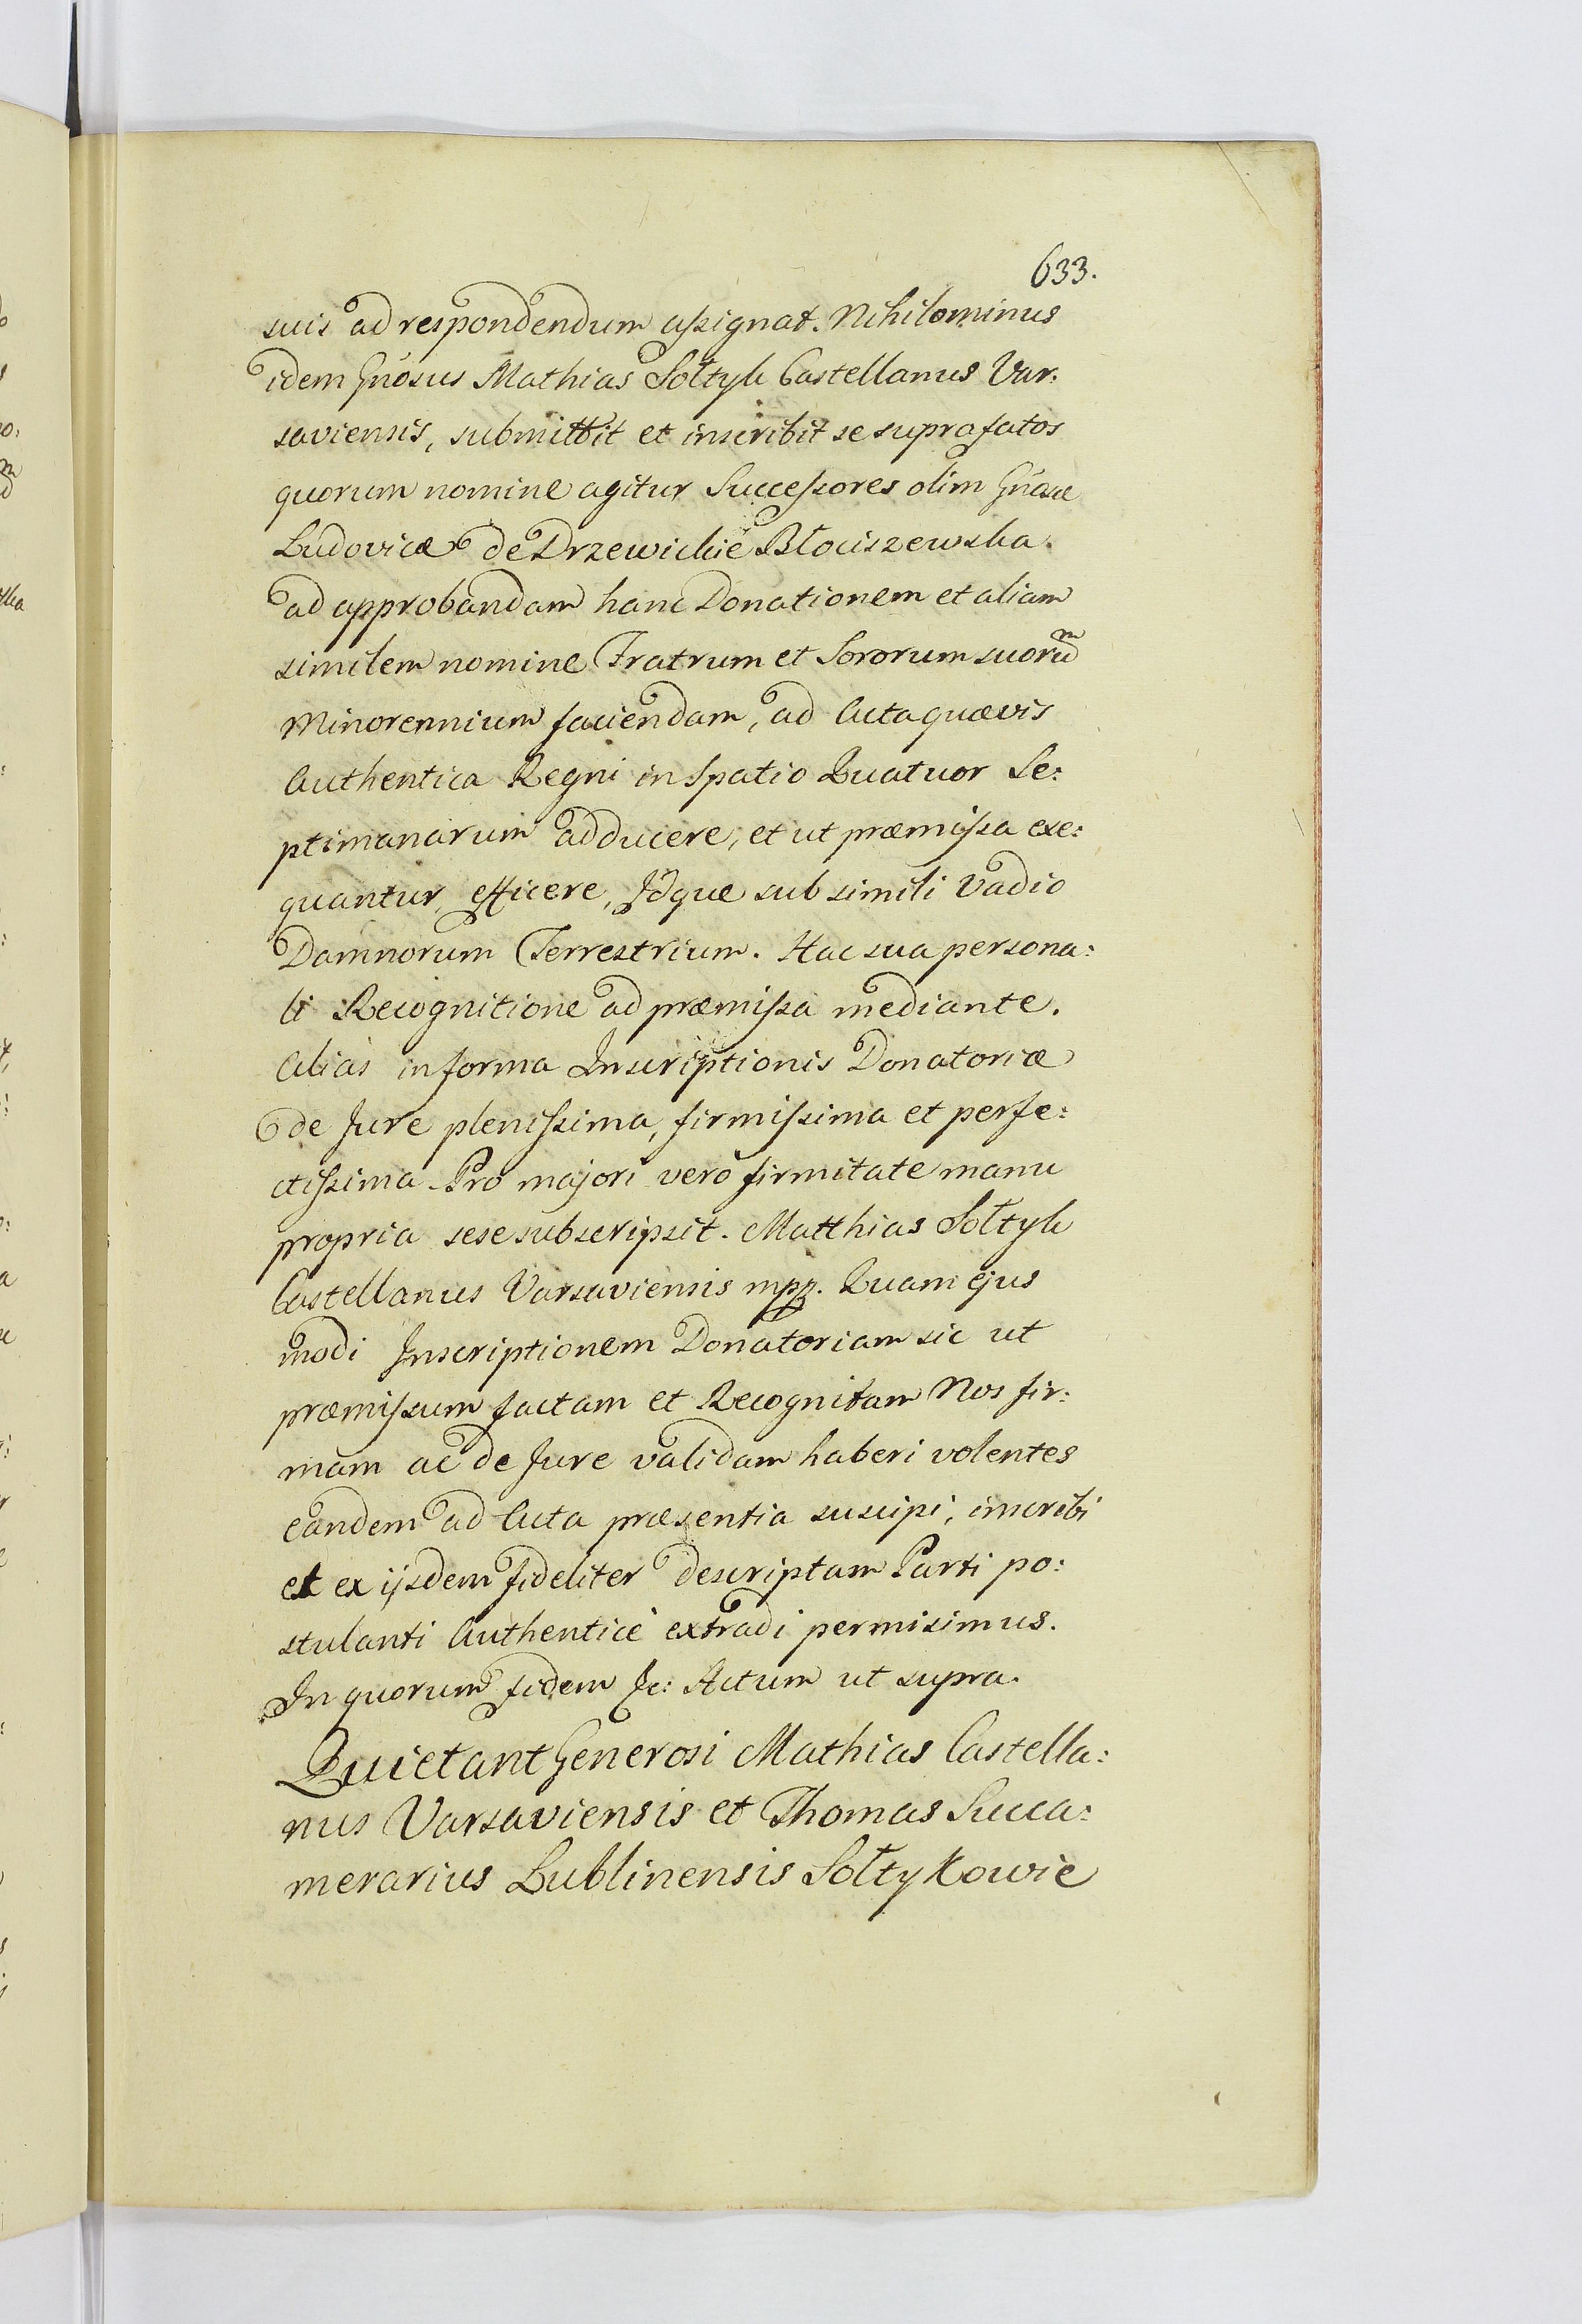 633.
suis ad respondendum assignat. Nihilominus
idem Gnosus Mathias Sołtyk Castellanus Var:
saviensis, submittit et inscribit se suprafatos
quorum nomine agitur Successores olim Gnasæ
Ludovicæ de Drzewickie Błociszewska.
ad approbandam hanc Donationem et aliam
similem nomine Fratrum et Sororum suorum
Minorennium faciendam, ad Acta quævis
Authentica Regni in Spatio Quatuor Se:
ptimanarum adducere, et ut præmissa exe:
quantur, efficere, Idque sub simili Vadio
Damnorum Terrestrium. Hac sua persona:
li Recognitione ad præmissa mediante.
Aliàs in forma Inscriptionis Donatoriæ
de Jure plenissima, firmissima et perfe:
ctissima Pro majori verò firmitate manu
propria sese subscripsit. Matthias Sołtyk
Castellanus Varsaviensis mpp. Quam ejus
modi Inscriptionem Donatoriam sic ut
præmissum factam et Recognitam Nos fir:
mam ac de Jure validam haberi volentes
eandem ad Acta præsentia suscipi, inscribi
et ex ijsdem fideliter descriptam Parti po:
stulanti Authenticè extradi permisimus.
In quorum fidem &c: Actum ut supra.
Quietant Generosi Mathias Castella:
nus Varsaviensis et Thomas Succa:
merarius Lublinensis Sołtykowie